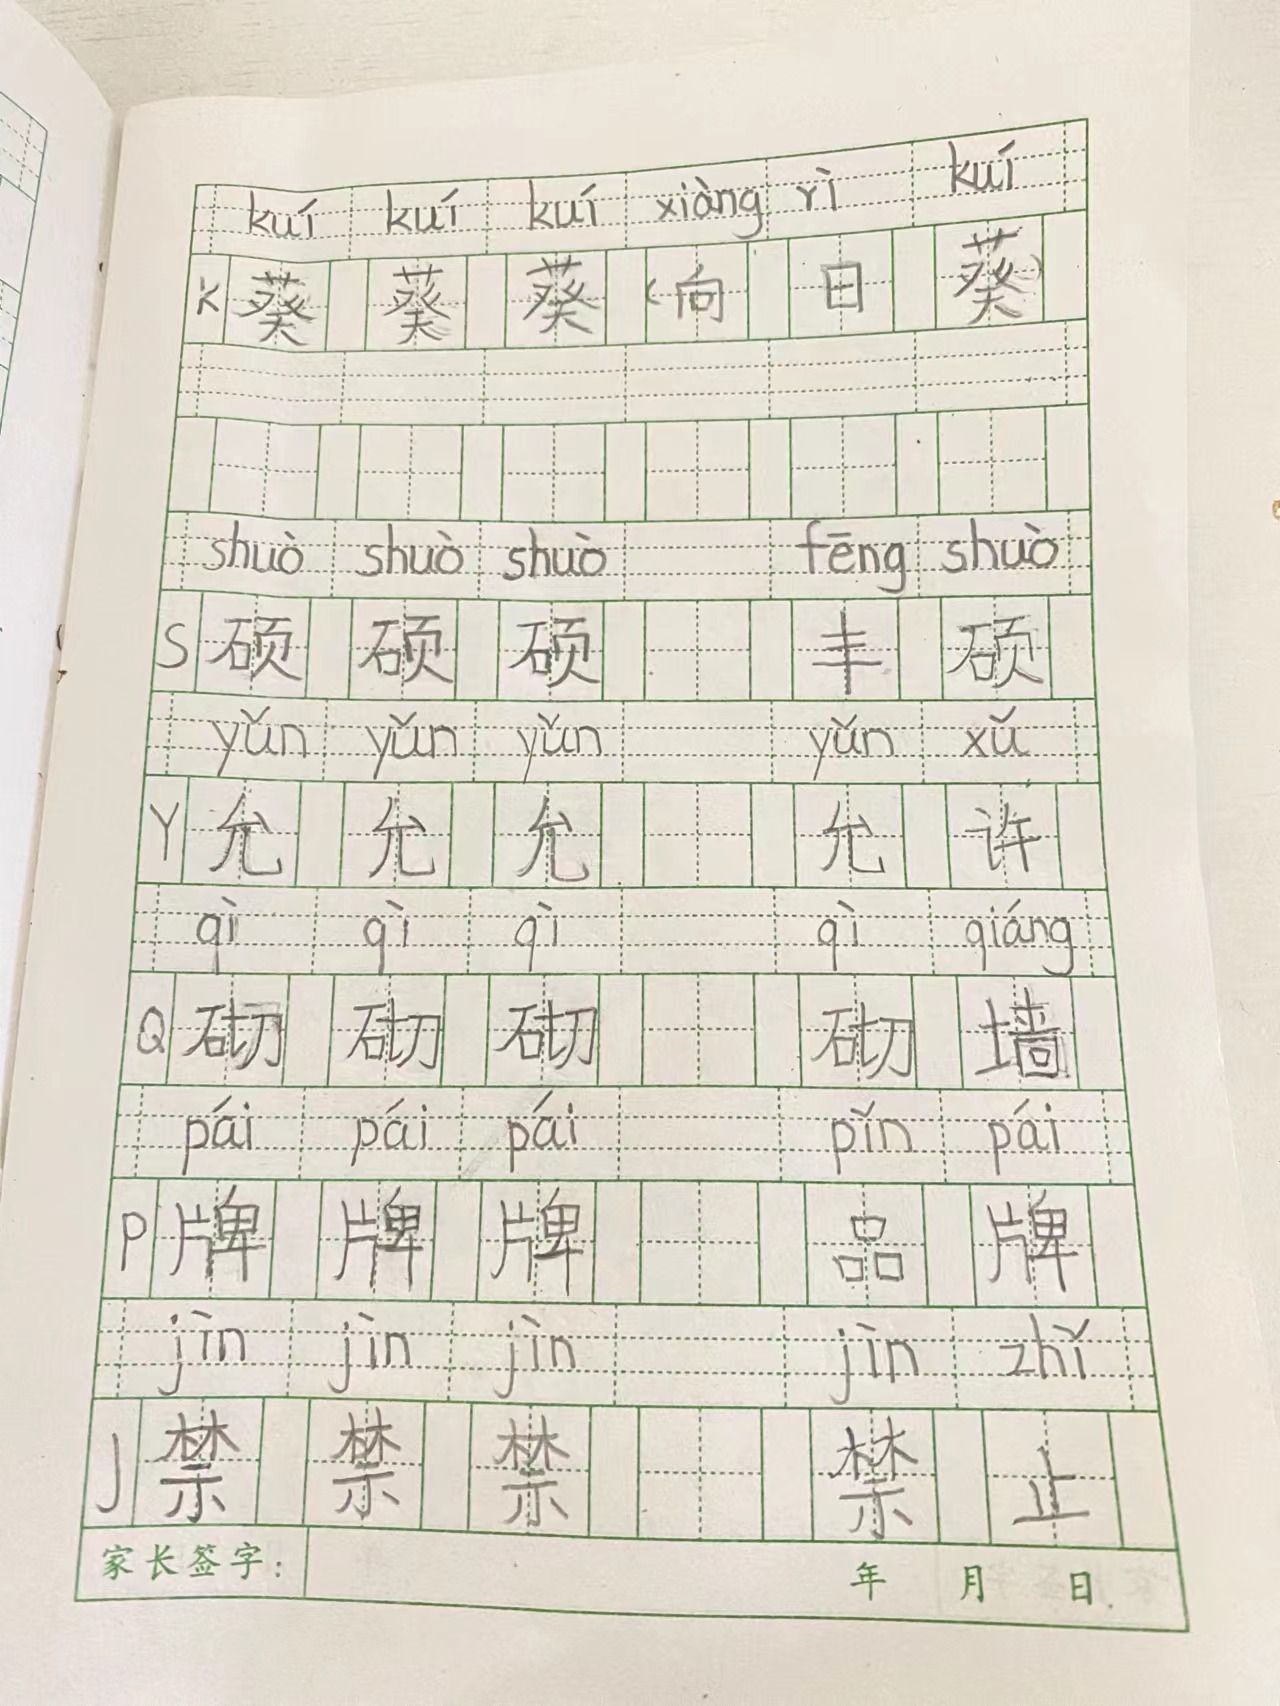 kuí kuí kuí xiàng rì kuí
K 葵 葵 葵 (向 日 葵)
shuò shuò shuò fēng shuò
S 硕 硕 硕 丰 硕
yǔn yǔn yǔn yǔn xǔ
Y 允 允 允 允 许
qì qì qì qì qiáng
Q 砌 砌 砌 砌 墙
pái pái pái pǐn pái
P 牌 牌 牌 品 牌
jìn jìn jìn jìn zhǐ
J 禁 禁 禁 禁 止
家长签字: 年 月 日